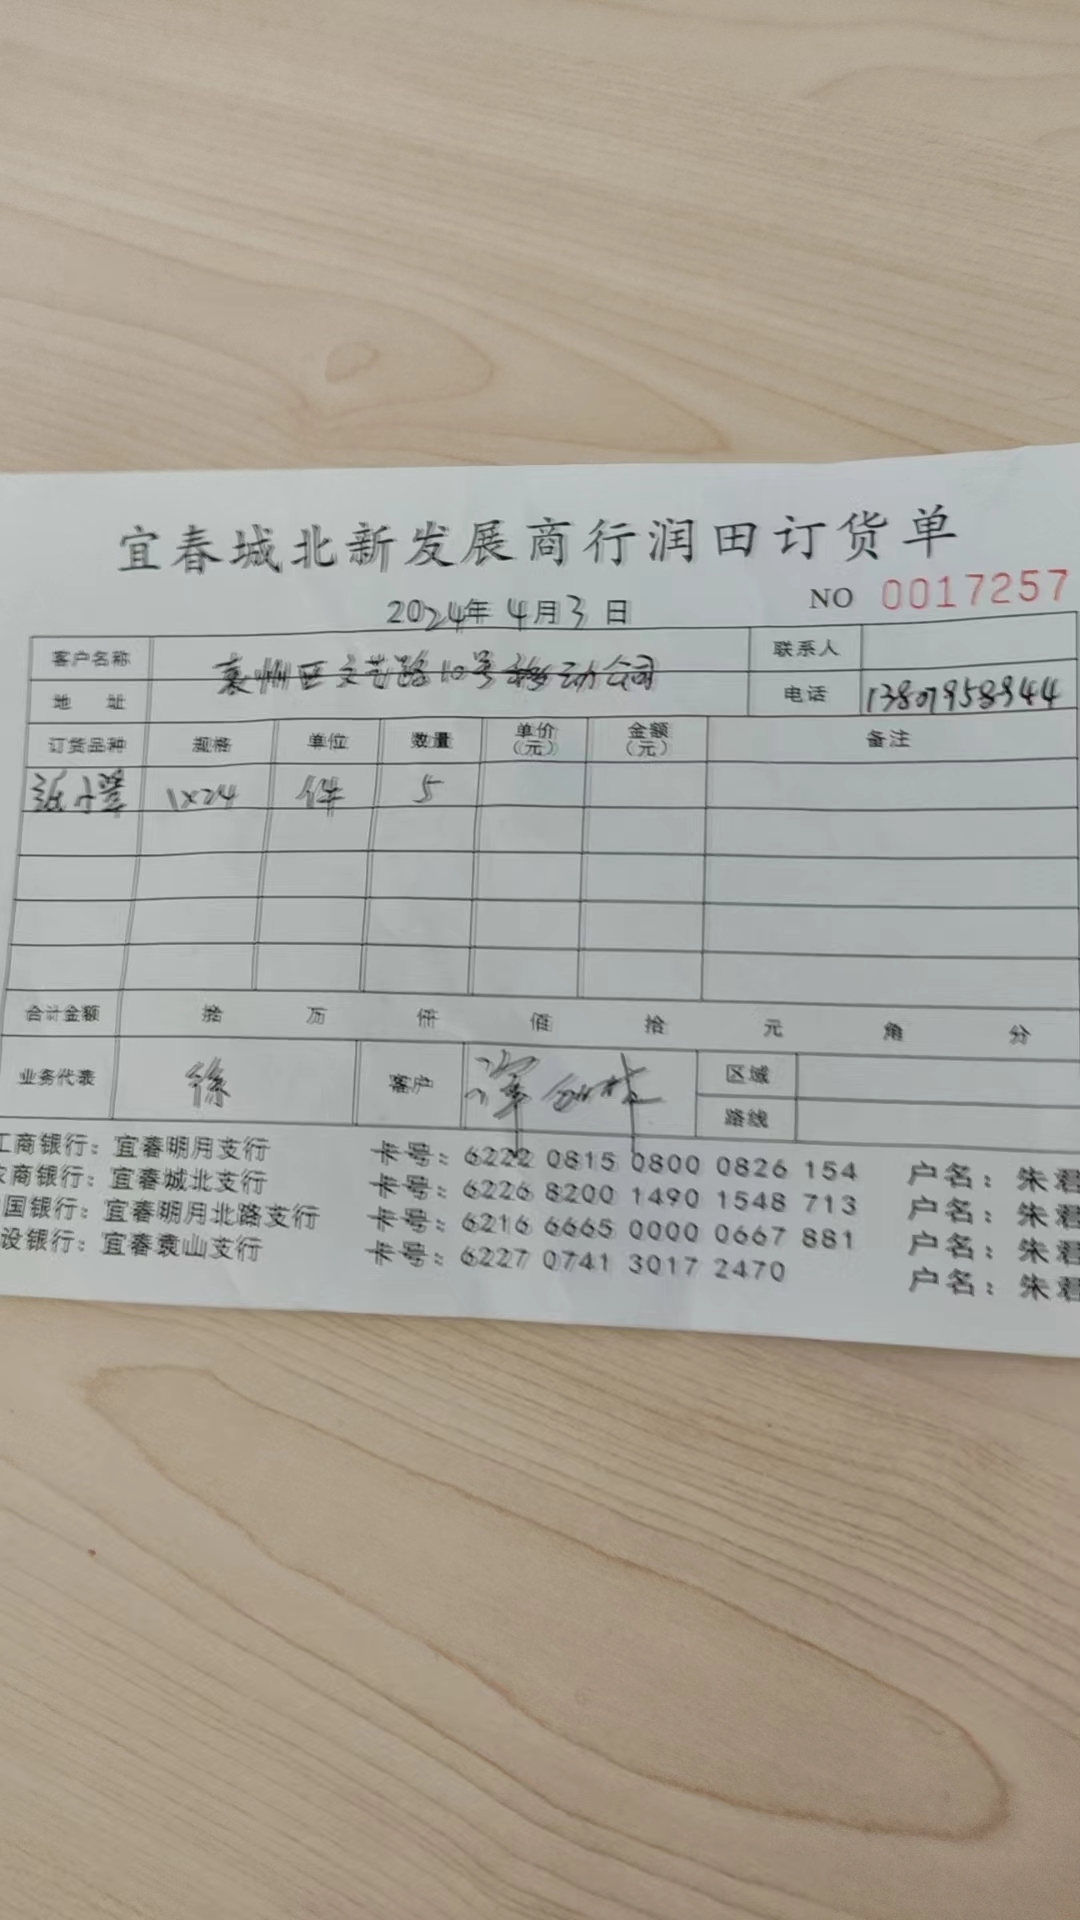 宜春城北新发展商行润田订货单
2024年4月3日 NO 0017257
客户名称 联系人
袁州区文艺路10号移动公司
地 址 电话 13807958944
订货品种 规格 单位 数量 单价(元) 金额(元) 备注
1×24 件 5
合计金额 拾 万 仟 佰 拾 元 角 分
业务代表 徐 客户 区域
路线
工商银行：宜春明月支行 卡号：6222 0815 0800 0826 154 户名：朱君
农商银行：宜春城北支行 卡号：6226 8200 1490 1548 713 户名：朱君
国银行：宜春明月北路支行 卡号：6216 6665 0000 0667 881 户名：朱君
设银行：宜春袁山支行 卡号：6227 0741 3017 2470 户名：朱君